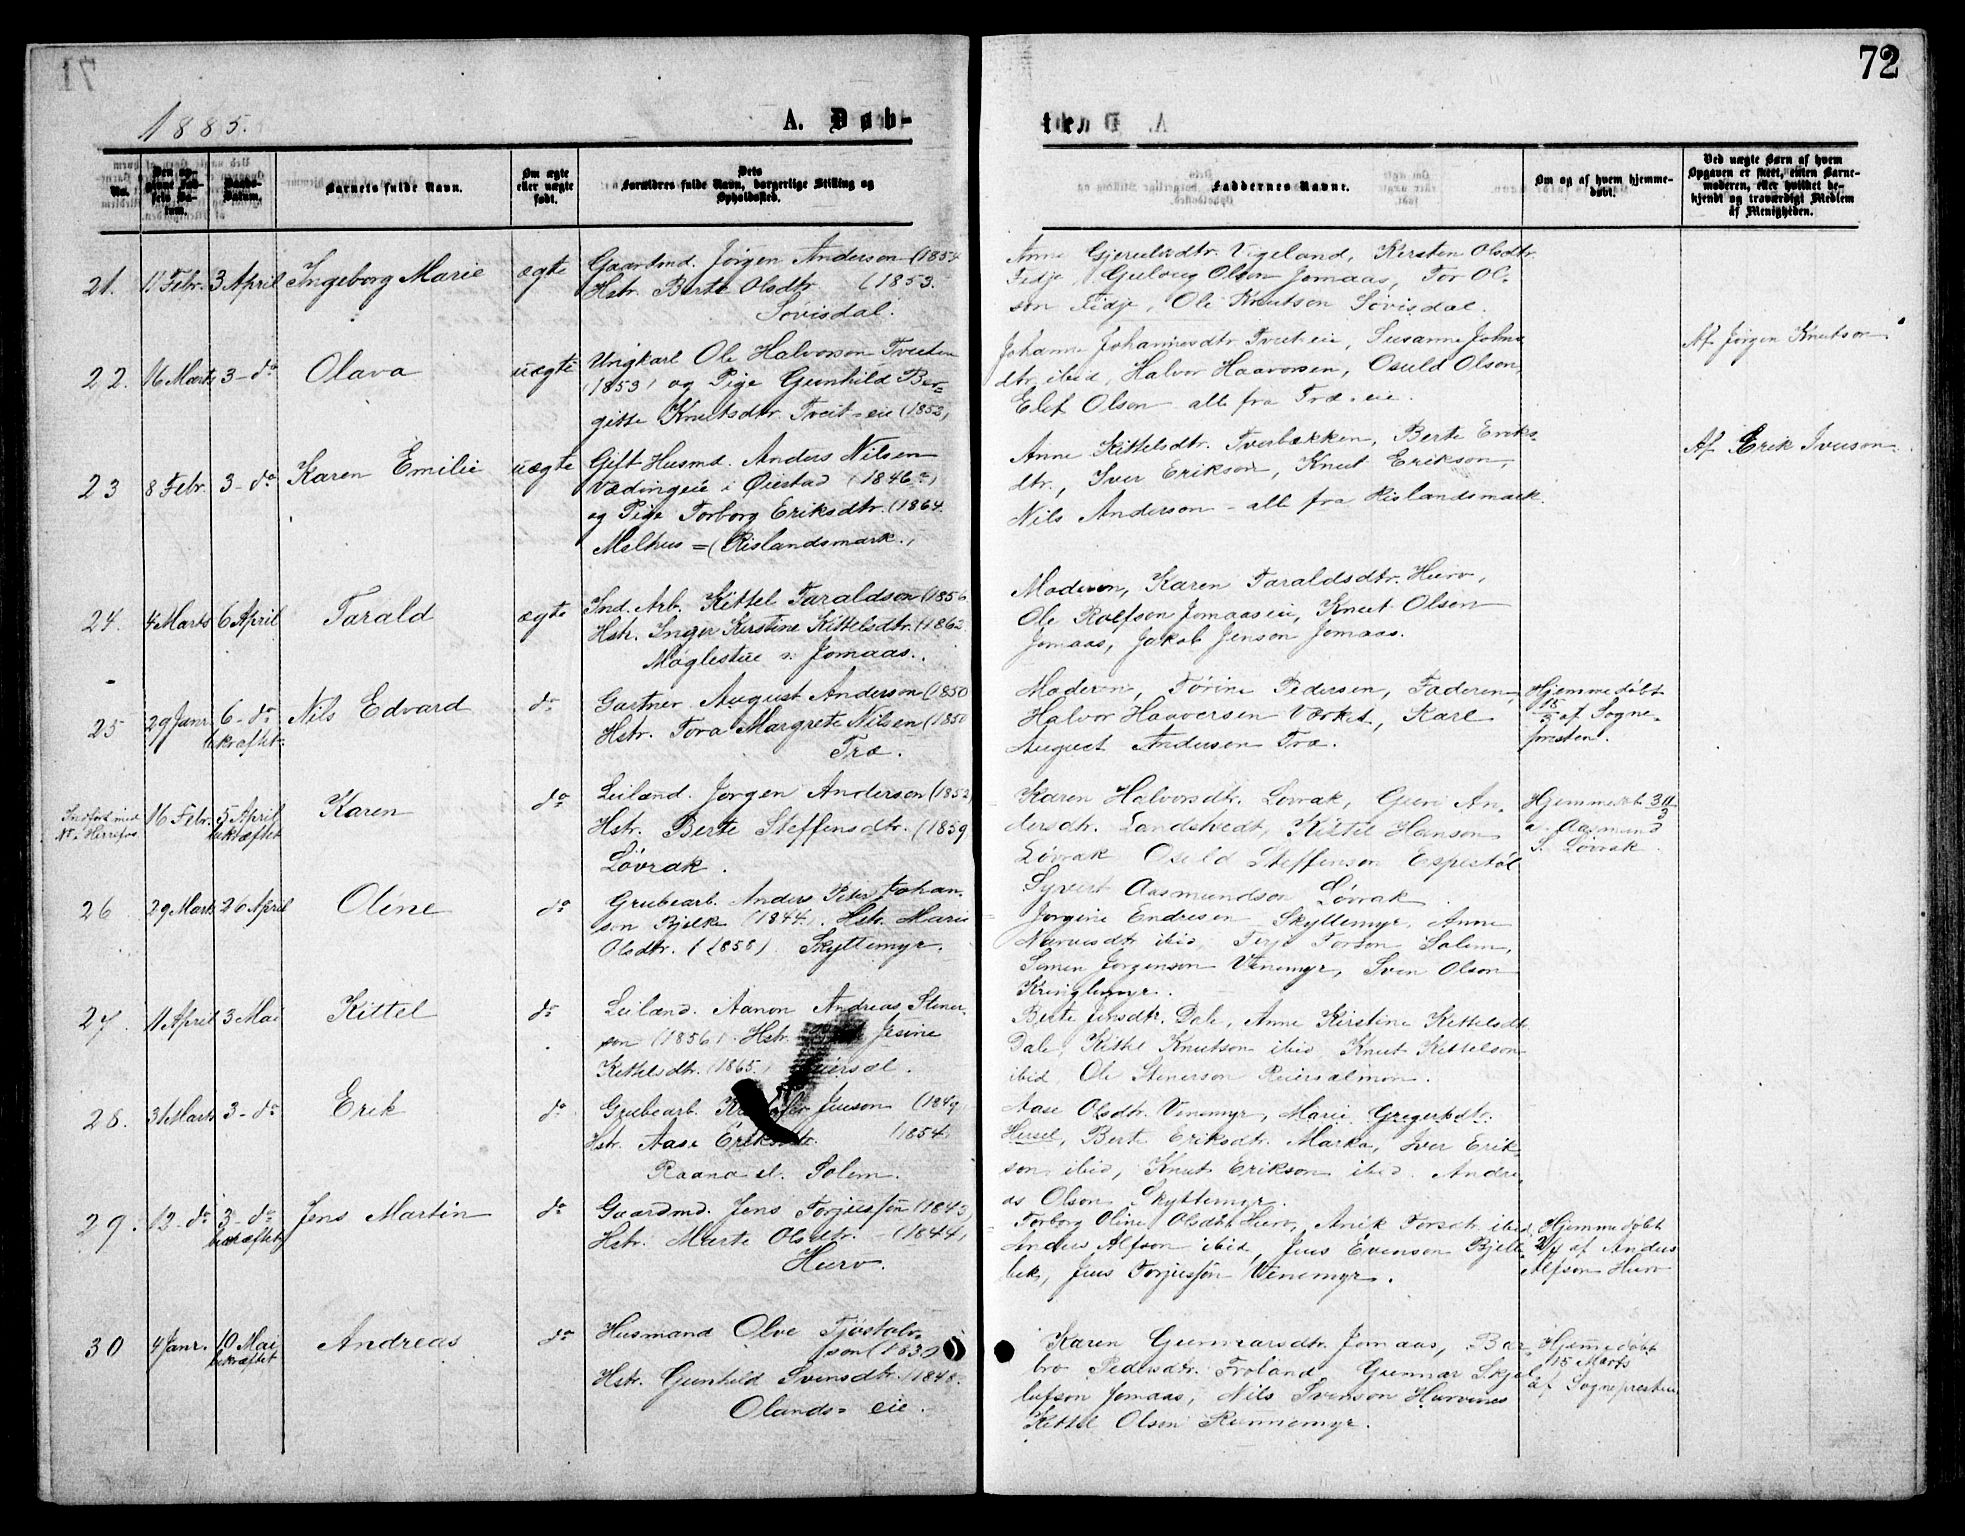 72
1885.
A. Døb-
ten
No.
Den opgivne Fødsels Datum.
Daabs-Datum.
Barnets fulde Navn.
Om ægte eller uægte født.
Dets Forældres fulde Navn, borgerlige Stilling og Opholdssted.
Faddernes Navne.
Om og af hvem hjemmedøbt.
Ved uægte Børn af hvem Opgaven er skeet, enten Barnemoderen, eller hvilket bekjendt og troværdigt Medlem af Menigheden.
21. 11 Febr. 3 April Ingeborg Marie ægte
Gaardmd. Jörgen Anderson (1854
Hstr. Berte Olsdtr (1853.
Sovisdal.
Anne Gjerulvdtr. Vigeland, Kirsten Olsdtr.
Fidje, Guloug Olsen Jomaas, Tor Ol-
son Fidje, Ole Knutson Sövisdal.
22. 16 Marts 3 - do Olava uægte
Ungkarl Ole Halvorson Tveiten
(1853) og Pige Gunhild Ber-
gitte Knutsdtr. Tveit-eie (1853)
Johanne Johannesdtr Tveiteie, Susanne Johns
dtr. ibid, Halvor Haavorsen, Osuld Olson,
Elef Olson alle fra Træ-eie.
Af Jörgen Knutson
23 8 Febr. 3 - do Karen Emilie uægte
Gift Husmd. Anders Nilsen
Vædingeie i Øiestad (1846)
og Pige Torborg Eriksdtr. (1864.
Melhus = (Rislandsmark.)
Anne Kittelsdtr. Tverbækken, Berte Eriks-
dtr., Iver Erikson, Knut Erikson,
Nils Anderson - alle fra Rislandsmark.
Af Erik Iverson
24. 4 Marts 6 April Tarald ægte
Ind. Arb. Kittel Taraldson (1856
Hstr. Inger Kirstine Kittelsdtr. (1862
Möglestue v. Jomaas.
Moderen, Karen Taraldsdtr. Hurv,
Ole Rolfson Jomaaseie, Knut Olson
Jomaas, Jakob Jenson Jomaas.
25 29 Janr. 6 - do bekræftet Nils Edvard do
Gartner August Anderson (1850
Hstr. Tora Margrete Nilsen (1850
Træ.
Moderen, Törine Pedersen, Faderen,
Halvor Haaversen Værket, Karl
August Anderson Træ.
Hjemmedöbt
15/3 af Sogne-
presten.
Indfört med
No. Herrefos 16 Febr. 5 April bekræftet Karen do
Leilænd. Jorgen Anderson (1852)
Hstr. Berte Steffensdtr. (1859
Lövrak.
Karen Halvorsdtr. Lovrak, Guri An-
dersdtr. Landstvedt, Kittil Hanson
Lövrak Osuld Steffenson Espestöl
Syvert Aasmundson Lövrak.
a. Aasmund
S. Lövrak.
26 29 Marts 26 April Oline do
Grubearb. Anders Peter Johan-
son Bjelk (1844). Hstr. Marie
Olsdtr. (1858) Skyttemyr.
Jorgine Endresen Skyttemyr, Anne
ibid, Terje Torson Salem,
Jorgenson Venemyr, Sven Olson
Kringlemyr.
27. 11 April 3 Mai Kittel do
Leilænd. Aanon Andreas Stener-
son (1856). Hstr. Jesine
Kittelsdtr. (1865.)
Berte Jensdtr. Dale, Anne Kirstine Kittelsdtr
Dale, Kittil Knutson ibid, Knut Kittelson
ibid Ole Stenerson Reiersalmon.
28. 31 Marts 3 - do Erik do
Grubearb. Juuson (1849
Hstr. Aase Eriksdtr. (1854.
Raana el. Solem.
Aase Olsdtr. Venemyr, Marie Gregersdtr.
Heisel, Berte Eriksdtr. Marka, Iver Erik-
son ibid, Knut Erikson ibid. Andre-
as Olson Skyttemyr.
29. 13 - do 3 - do bekræftet Jens Martin do
Gaardmd. Jens Torjusson (1843)
Hstr. Marte Olsdtr. - (1844)
Hurv.
Torborg Oline Olsdtr Hurv, Anik Torsdtr. ibid.
Anders Alfson ibid, Juus Evenson Bjelle-
bek, Juus Torjusson Venemyr.
Hjemmedöbt
2/4 af Anders
Alfson Hurv
30 4 Janr. 10 Mai bekræftet Andreas do
Husmand Olve Tjöstolv-
son (1830
Hstr. Gunhild Svensdtr. (1848.
Olands-eie.
Karen Gunnarsdtr. Jomaas, Bar-
bro Pedersdtr. Froland, Gunnar Skjel
lufson Jomaas, Nils Svenson Hurvenes
Kittel Olsen Rennemyr.
Hjemmedöbt
15 Marts
af Sognepresten